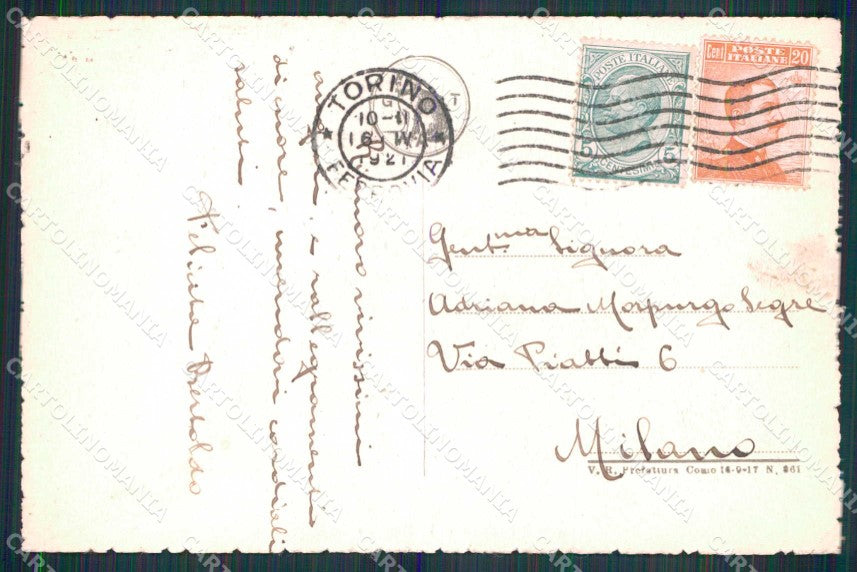 TORINO
10-11
16 IV
1921
FERROVIA
POSTE ITALIANE
5 5
CENTESIMI
Cent POSTE 20
ITALIANE
vivissimi
e rallegramenti
di cuore, cordiali
saluti
Felicita Bertoldo
Gent.ma Signora
Adriana Morpurgo Segre
Via Piatti 6
Milano
V. R. Prefettura Como 14-9-17 N. 361
CARTOLINOMANIA